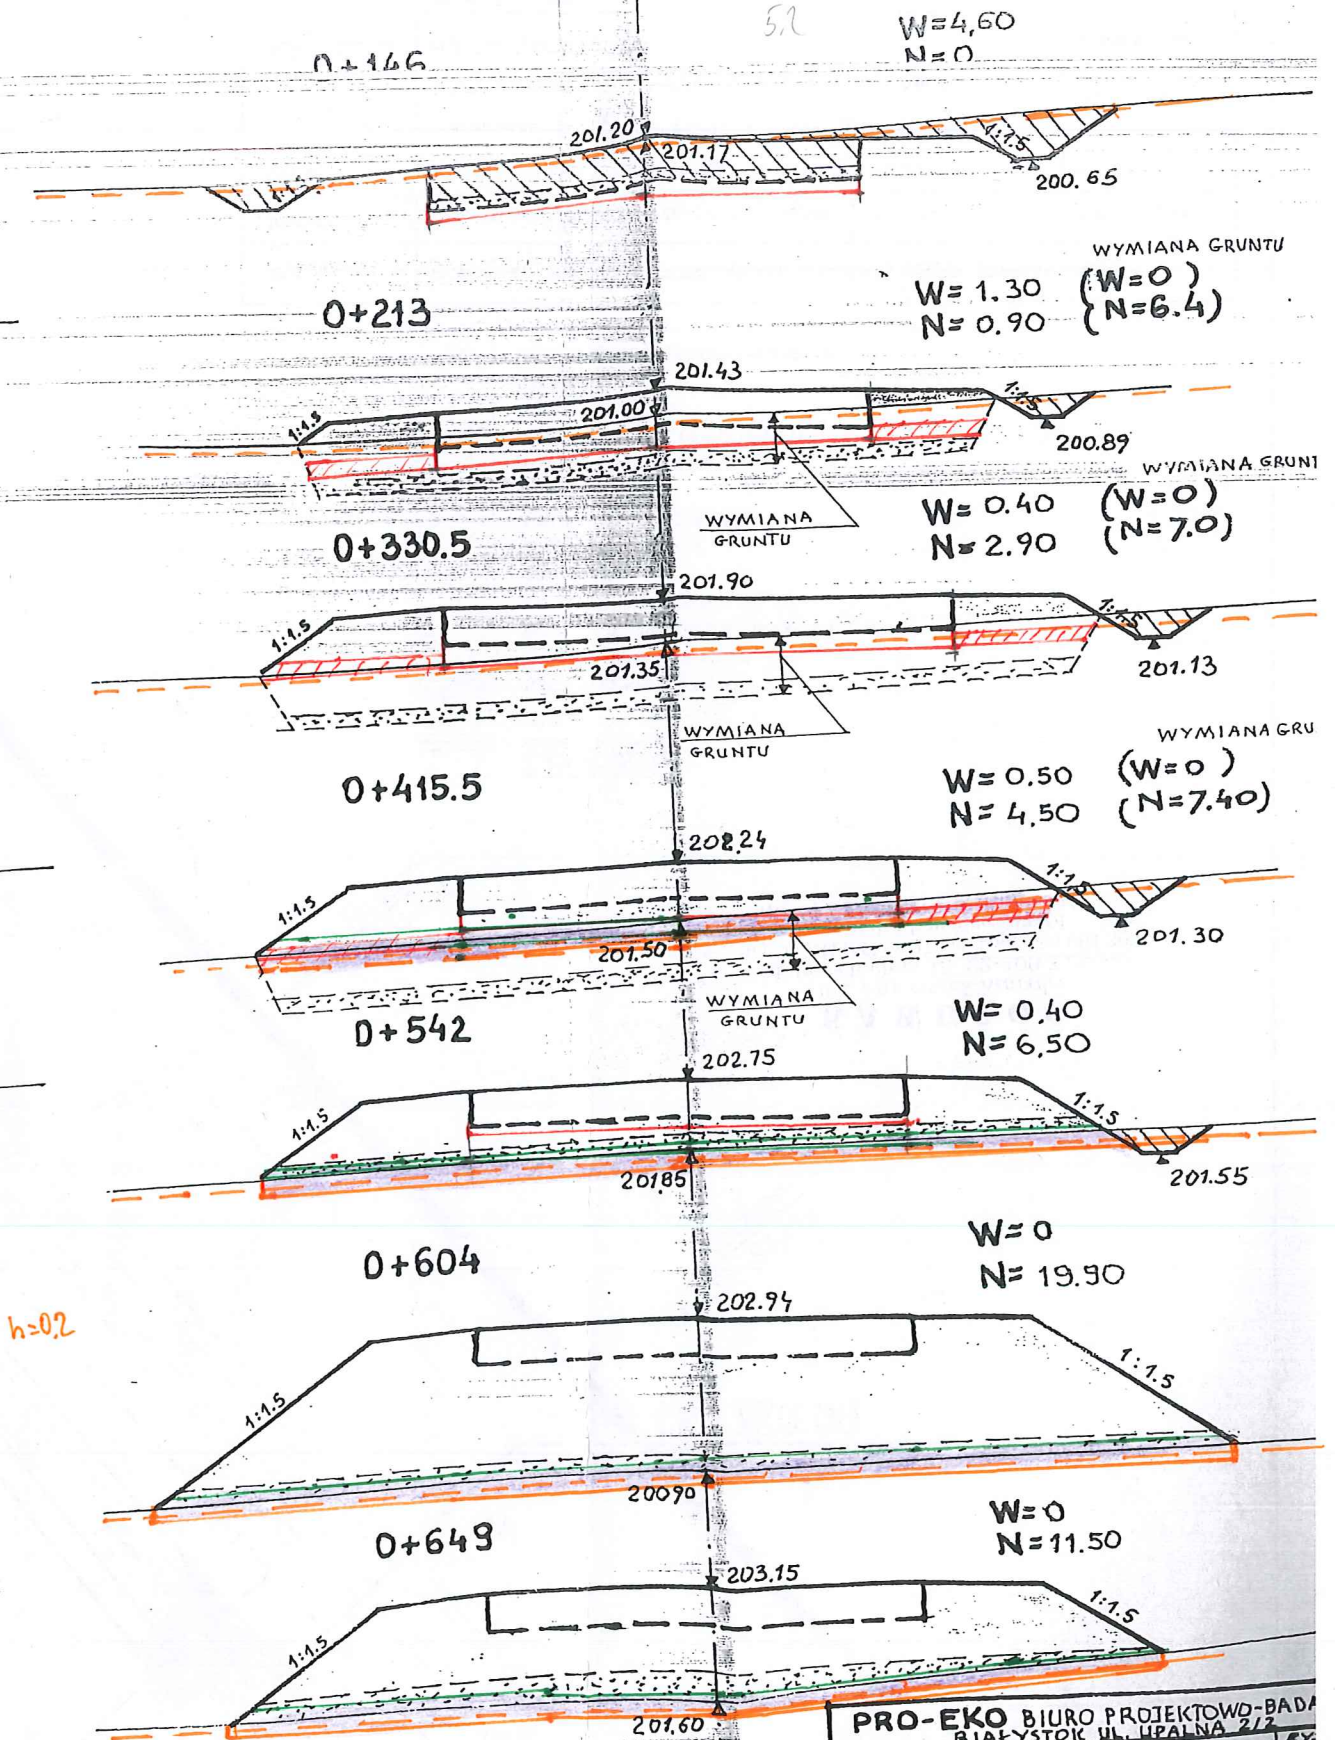 5.2
W=4,60
0+146
N=0
201.20
201.17
1:1.5
1:1.5
200.65
WYMIANA GRUNTU
W= 1.30 (W=0)
0+213
N= 0.90 (N=6.4)
201.43
1:1.5
1:1.5
201.00
200.89
WYMIANA GRUNT
W= 0.40 (W=0)
WYMIANA
GRUNTU
0+330.5
N= 2.90 (N=7.0)
201.90
1:1.5
1:1.5
201.35
201.13
WYMIANA
GRUNTU
WYMIANA GRU
W= 0.50 (W=0)
0+415.5
N= 4,50 (N=7.40)
202.24
1:1.5
1:1.5
201.50
201.30
WYMIANA
GRUNTU
W= 0.40
0+542
N= 6,50
202.75
1:1.5
1:1.5
20185
201.55
W= 0
0+604
N= 19.90
202.94
h=0,2
1:1.5
1:1.5
20090
W= 0
0+649
N= 11.50
203.15
1:1.5
1:1.5
201.60
PRO-EKO BIURO PROJEKTOWO-BADA
BIAŁYSTOK UL. UPALNA 2/2